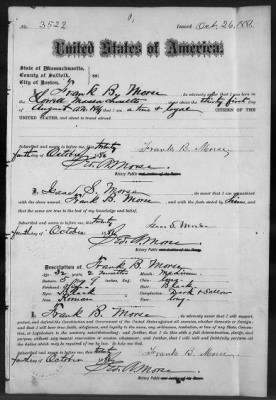 No. 3522 Issued Oct. 26, 1886
United States of America.
State of Massachusetts,
County of Suffolk,
City of Boston,
ss:
I, Frank B. Morse do solemnly swear that I was born in
Lowell Massachusetts on or about the thirty first day of
August ; that I am a true & loyal CITIZEN OF THE
UNITED STATES, and about to travel abroad.
Sworn and subscribed to before me, this twenty
day of October 1886 Frank B. Morse
Notary Public
I, S. Morse do swear that I am acquainted
with the above named Frank B. Morse and with the facts stated by
are true to the best of my knowledge and belief.
day of October 1886
Notary Public
Description of Frank B. Morse
Age: 32 years 2 months Mouth: Medium
Stature: 5 feet inches, Eng. Chin: long
Hair: Black
Eyes: Black Complexion: Dark & Sallow
Nose: Roman Face: Long
I, Frank B. Morse do solemnly swear that I will support,
protect, and defend the Constitution and Government of the United States against all enemies, whether domestic or foreign,
and that I will bear true faith, allegiance, and loyalty to the same, any ordinance, resolution, or law of any State, Convention,
or Legislature to the contrary notwithstanding; and further, that I do this with a full determination, pledge, and
purpose, without any mental reservation or evasion whatsoever; and further, that I will well and faithfully perform
all the duties which may be required of me by law: So help me God.
Sworn to before me, this twenty
day of October 1886 Frank B. Morse
Notary Public